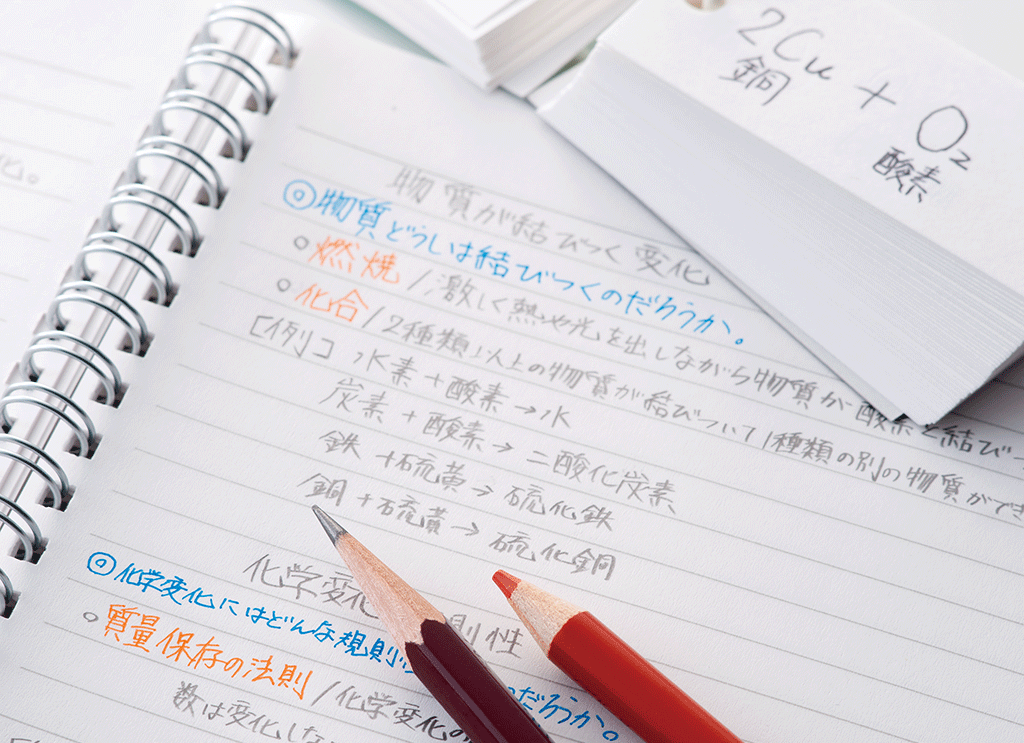 2Cu + O₂
銅 酸素
化。
物質が結びつく変化
◎物質どうしは結びつくのだろうか。
○燃焼/激しく熱や光を出しながら物質が酸素と結びつ
○化合/2種類以上の物質が結びついて1種類の別の物質ができ
[例] 水素+酸素→水
炭素+酸素→二酸化炭素
鉄+硫黄→硫化鉄
銅+硫黄→硫化銅
化学変化 則性
◎化学変化にはどんな規則 のだろうか。
○質量保存の法則/化学変化の
数は変化しな